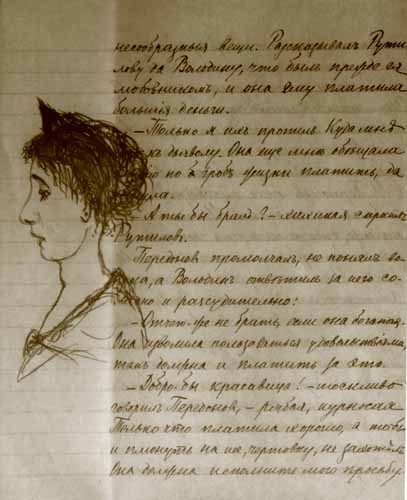 несообразныя вещи. Разсказывалъ Рути
лову да Володину, что былъ прежде ея
любовникомъ, и она ему платила
большія деньги.
— Только я ихъ пропилъ. Куда мнѣ
къ дьяволу. Она еще мнѣ обѣщала
по гробъ жизни платить, да
ула.
— А ты бы бралъ? — хихикая спросилъ
Рутиловъ.
Передоновъ промолчалъ, не понялъ во-
са, а Володинъ отвѣтилъ за него со-
но и разсудительно:
— Отчего-же не брать, если она богатая.
Она изволила пользоваться удовольствіями,
такъ должна и платить за это.
— Добро-бы красавица! — тоскливо
говорилъ Передоновъ, — рябая, курносая
Только что платила хорошо, а то бы
и плюнуть на нее, чертовку, не захотѣлъ
Она должна исполнить мою просьбу